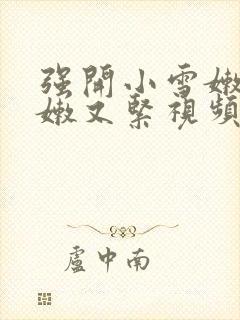 强開小雪嫩
嫩又緊視頻
盧中南